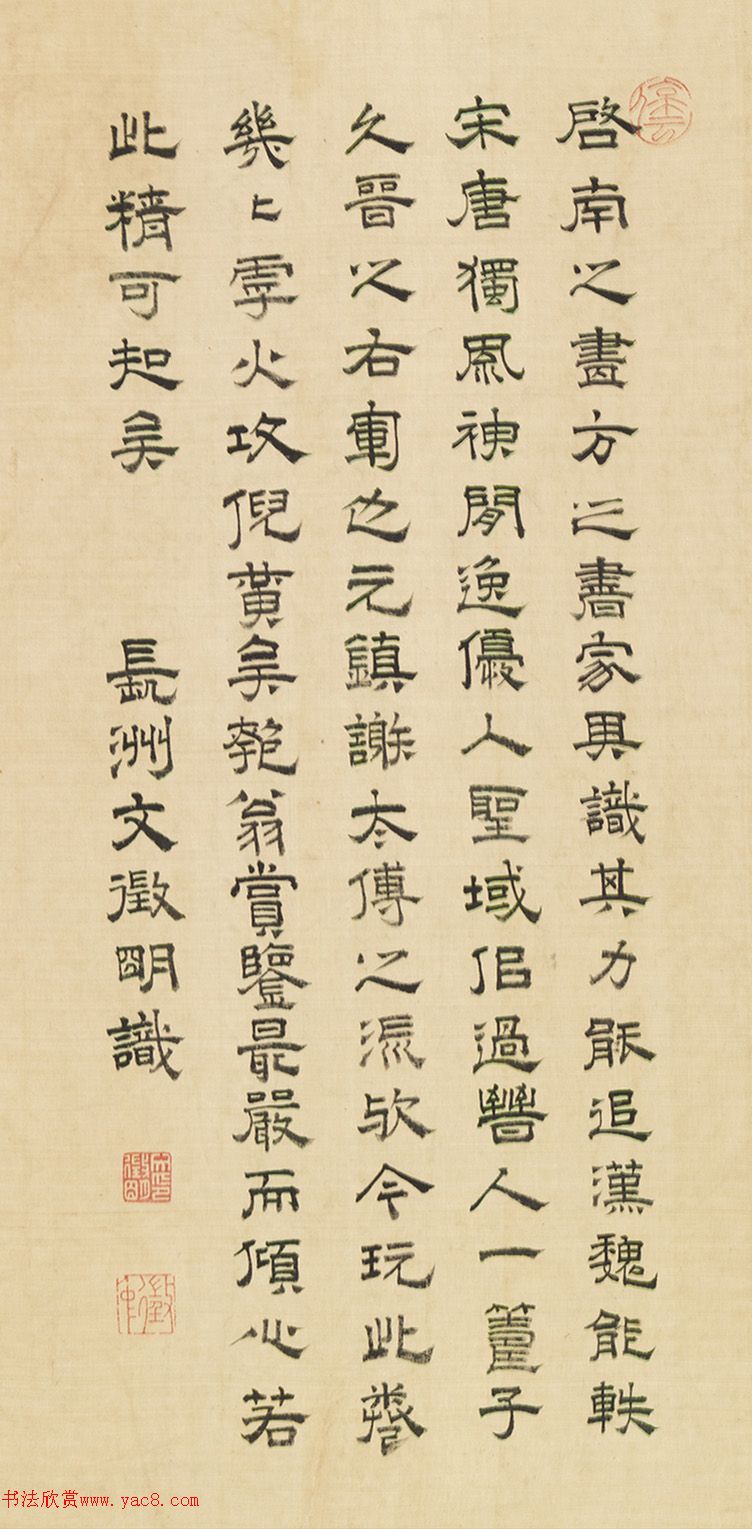 啓南之畫方之書家具識其力能追漢魏能軼
宋唐獨風神閒逸優入聖域佀過晉人一籌子
久晉之右軍也元鎮謝太傅之派歟今玩此卷
幾〻乎火攻倪黃矣匏翁賞鑒最嚴而傾心若
此精可知矣 長洲文徵明識
停雲
文徵明印
徵仲
书法欣赏www.yac8.com